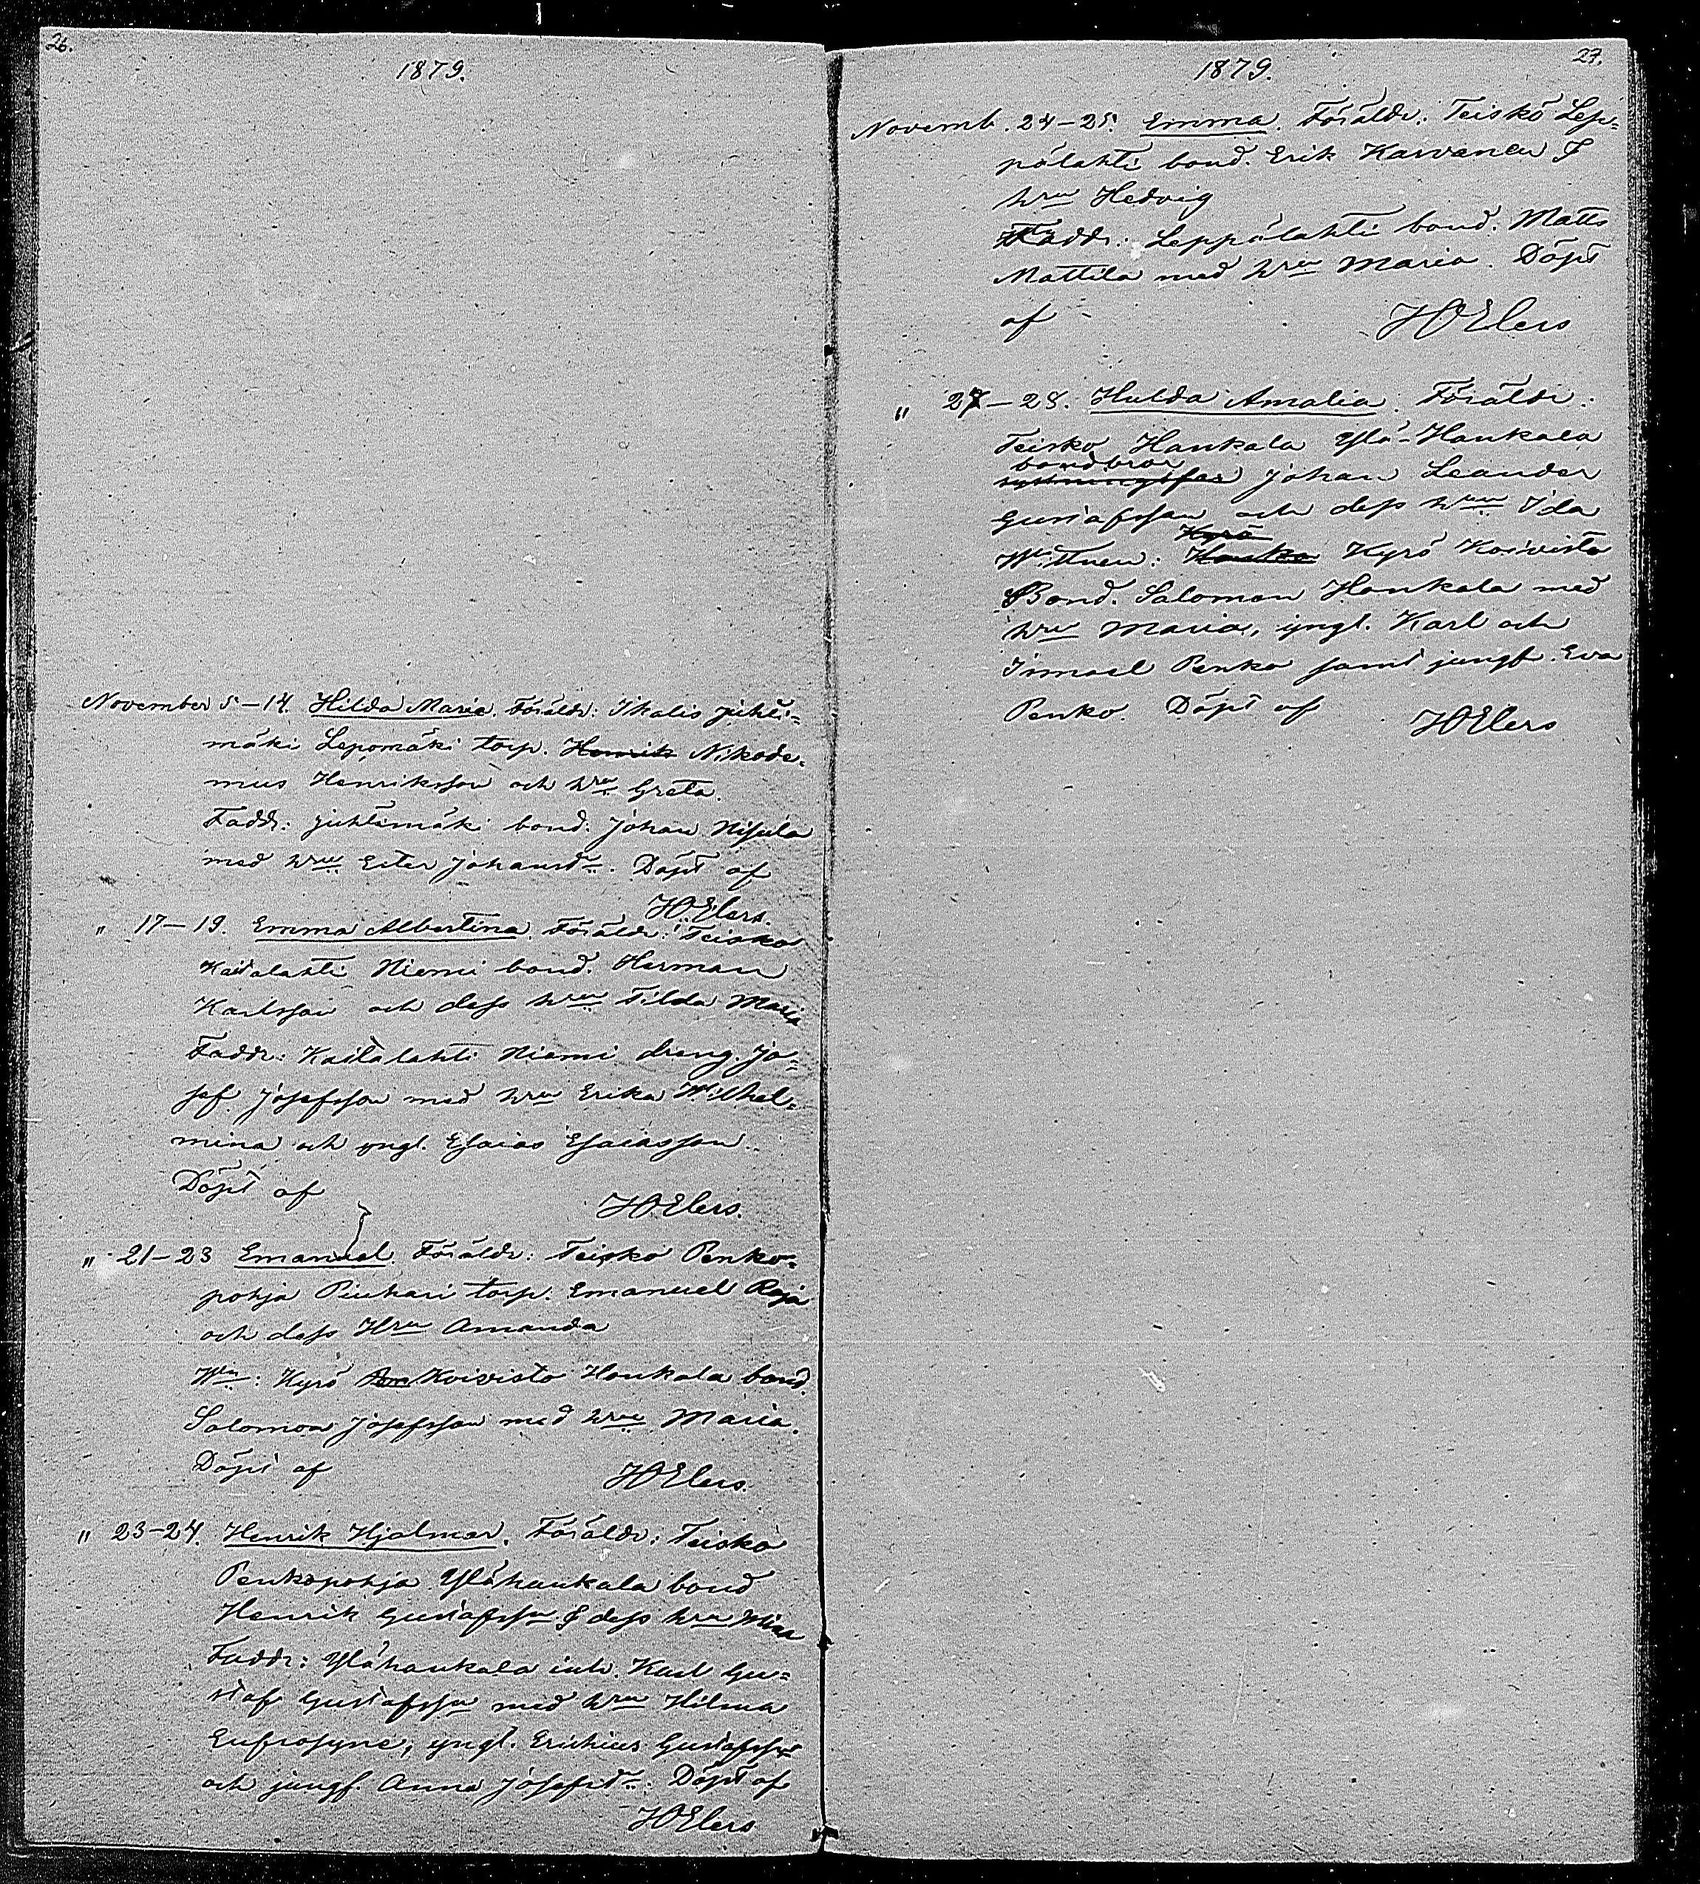 26.
1879.
November 5-14. Hilda Maria. Föräldr: Ikalis Juhti-
mäki Lepomäki torp. Henrik Nikode-
mus Henriksson och hru Greta.
Faddr: Juhtimäki bond. Johan Nisula
med hru Ester Johansdr. Döpt af
HOElers.
" 17-19. Emma Albertina. Föräldr: Teisko
Kaitalahti Niemi bond. Herman
Karlsson och dess hru Tilda Maria
Faddr: Kaitalahti Niemi dreng. Jo-
sef Josefsson med hru Erika Wilhel-
mina och yngl. Esaias Esaiasson.
Döpt af
HOElers.
" 21-23 Emanuel. Föräldr: Teisko Penko-
pohja Piuhari torp. Emanuel Raja
och dess Hru Amanda
Wtn: Kyrö Koivisto Honkala bond.
Salomon Josefsson med hru Maria.
Döpt af
HOElers.
" 23-24. Henrik Hjalmar. Föräldr: Teisko
Penkopohja Ylähaukala bond
Henrik Gustafsson & dess hru Miina
Faddr: Ylähaukala inh. Karl Gu-
staf Gustafsson med hru Hilma
Eufrosyne, yngl. Gustafsson
och jungf. Anna Josefsdr: Döpt af
HOElers
27.
1879.
Novemb. 24-25. Emma. Föräldr: Teisko Lep-
pälahti bond. Erik Karvanen &
hru Hedvig
Faddr: Leppälahti bond. Matts
Mattila med hru Maria. Döpt
af HOElers
" 27-28. Hulda Amalia. Föräldr:
Teisko Haukala Ylä-Haukala
bondbror
sytningsfar Johan Leander
Gustafsson och dess hru Ida
Kyrö
Wittnen: Hauka Kyrö Koivisto
Bond. Salomon Honkala med
hru Maria, yngl. Karl och
Ismael Penko samt jungf. Eva
Penko. Döpt af
HOElers